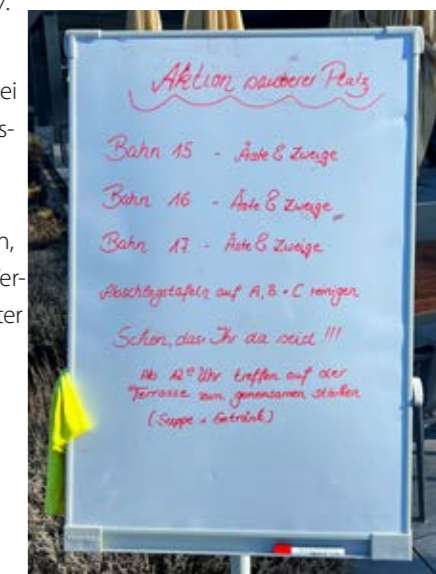 Aktion sauberer Platz
Bahn 15 - Äste & Zweige
Bahn 16 - Äste & Zweige
Bahn 17 - Äste & Zweige
Abschlagstafeln auf A, B + C reinigen
Schön, dass Ihr da seid !!!
Ab 12⁰⁰ Uhr treffen auf der
Terrasse zum gemeinsamen stärken
(Suppe + Getränk)